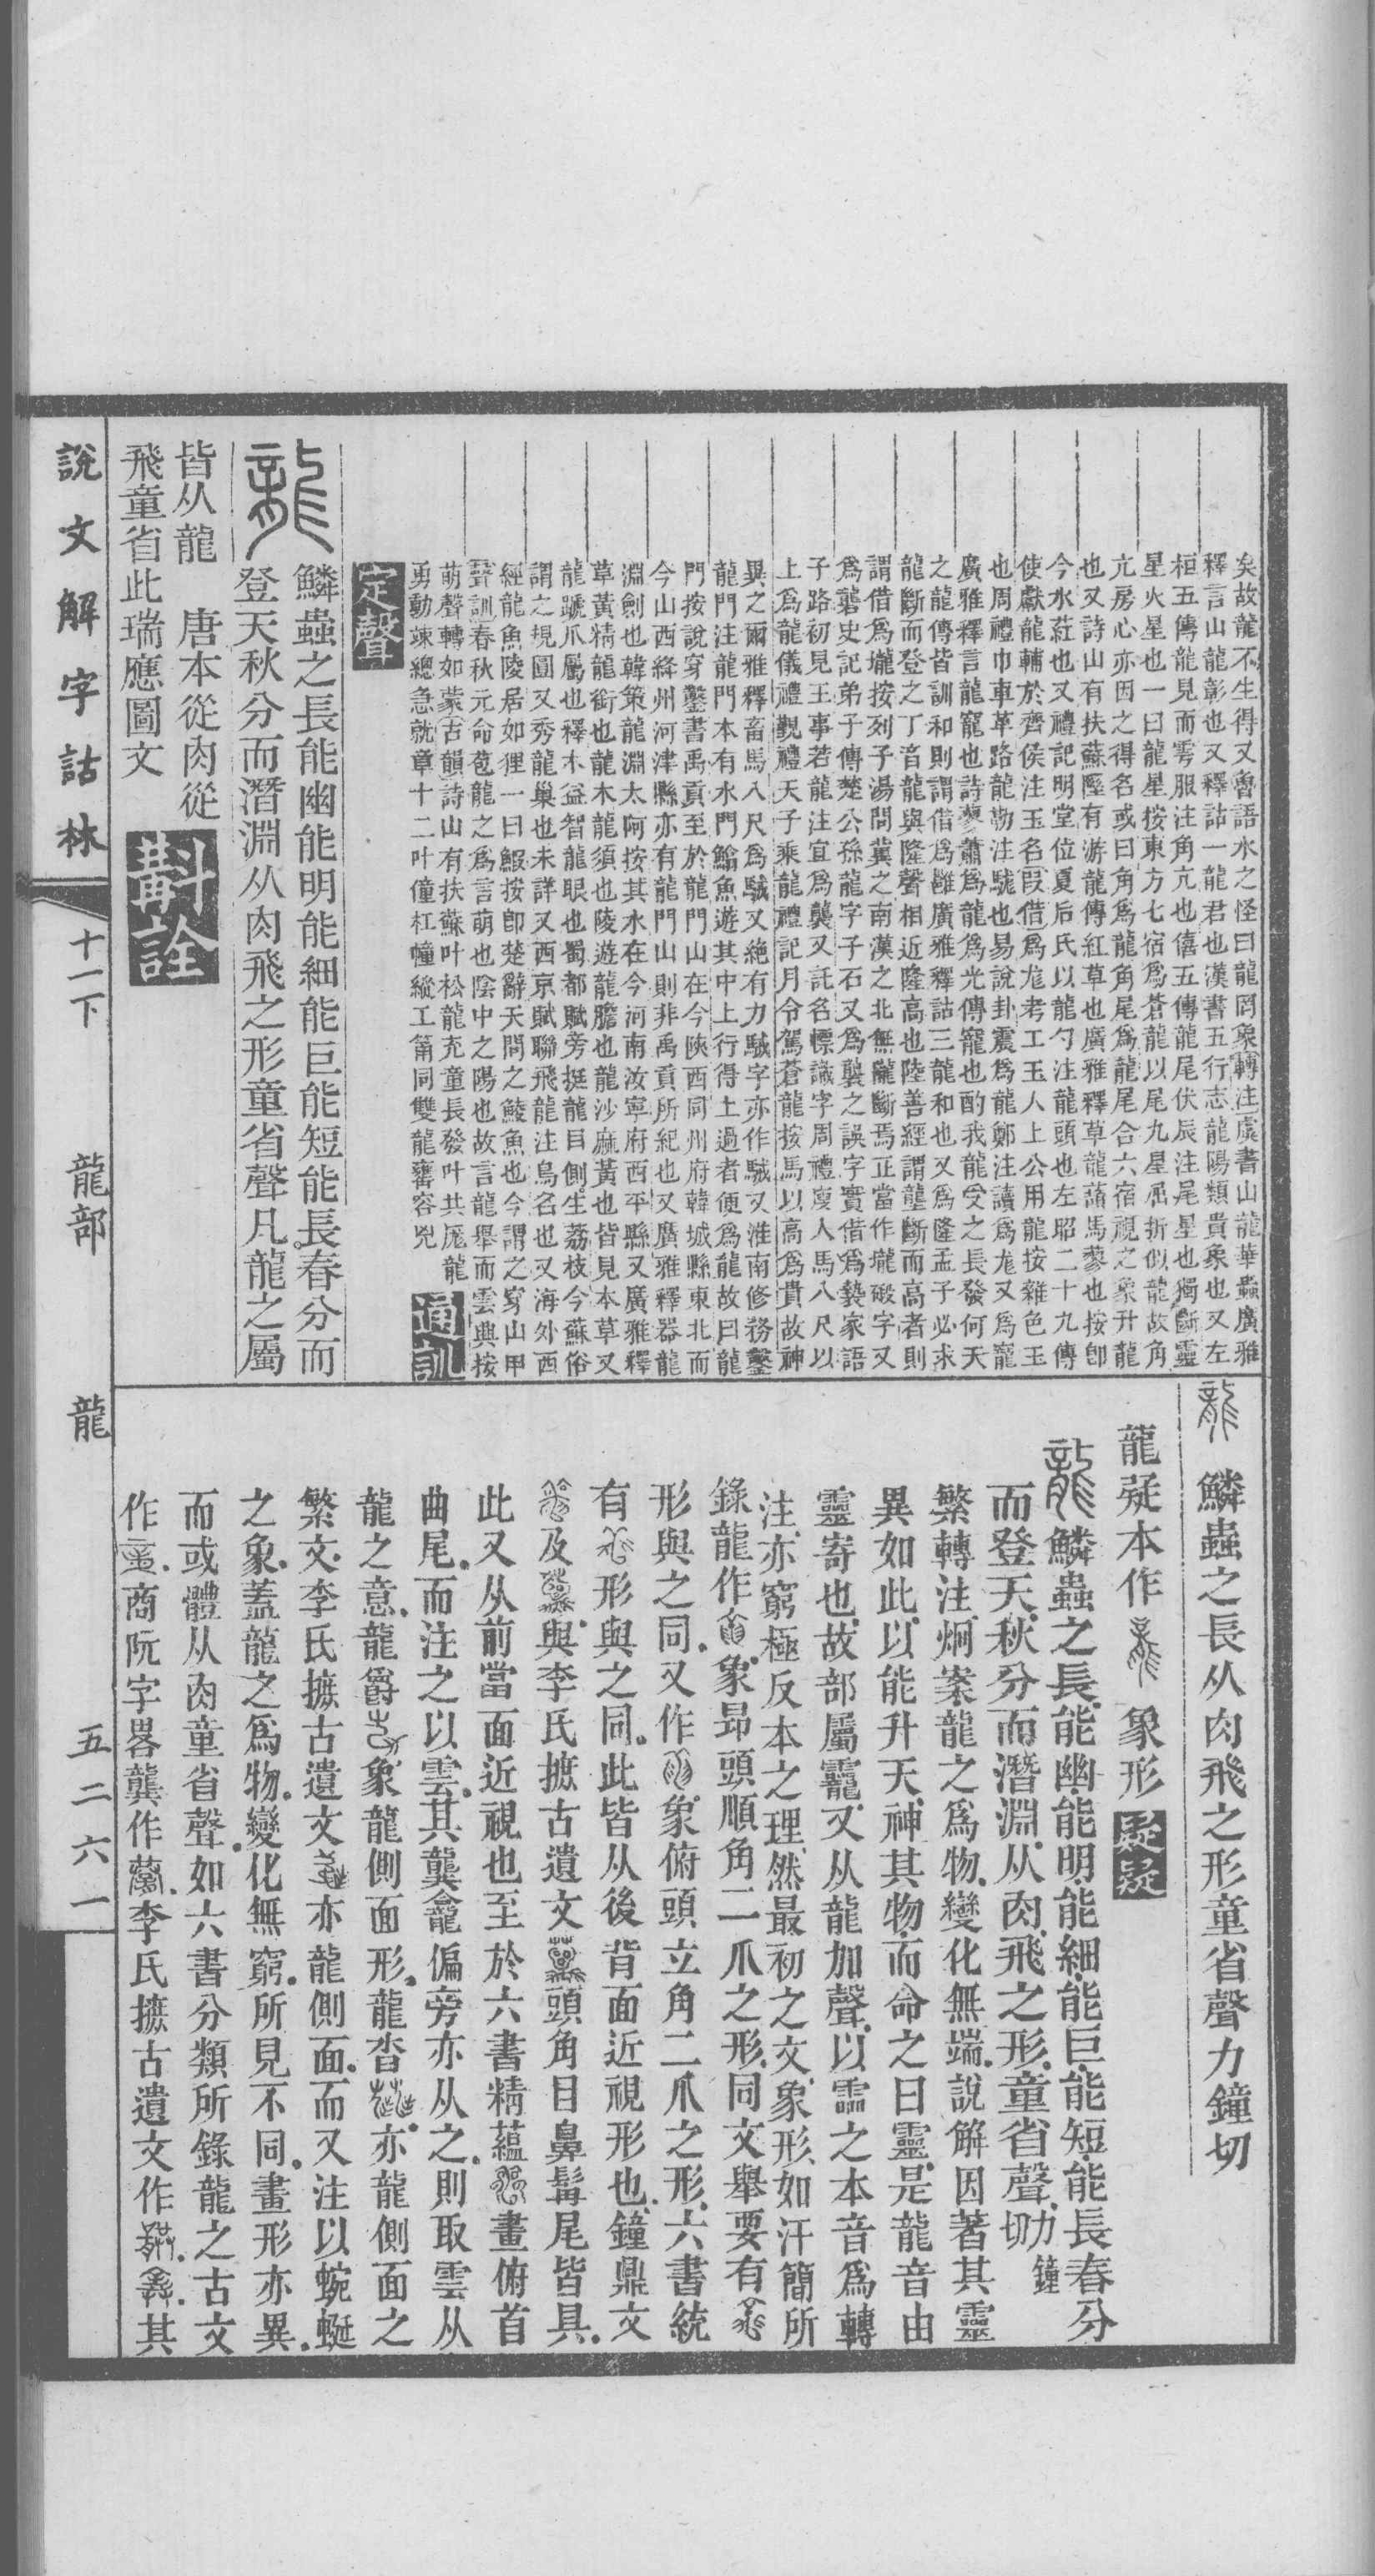 矣故龍不生得又魯語水之怪曰龍罔象轉注虞書山龍華蟲廣雅
釋言山龍彰也又釋詁一龍君也漢書五行志龍陽類貴象也又左
桓五傳龍見而雩服注角亢也僖五傳龍尾伏辰注尾星也獨斷靈
星火星也一曰龍星按東方七宿爲蒼龍以尾九星屈折似龍故角
亢房心亦因之得名或曰角爲龍角尾爲龍尾合六宿視之象升龍
也又詩山有扶蘇隰有游龍傳紅草也廣雅釋草龍䕅馬蓼也按卽
今水葒也又禮記明堂位夏后氏以龍勺注龍頭也左昭二十九傳
使獻龍輔於齊侯注玉名叚借爲尨考工玉人上公用龍按雜色玉
也周禮巾車革路龍勒注駹也易說卦震爲龍鄭注讀爲尨又爲寵
廣雅釋言龍寵也詩蓼蕭爲龍爲光傳寵也酌我龍受之長發何天
之龍傳皆訓和則謂借爲雝廣雅釋詁三龍和也又爲隆孟子必求
龍斷而登之丁音龍與隆聲相近隆高也陸善經謂壟斷而高者則
謂借爲壠按列子湯問冀之南漢之北無隴斷焉正當作壠礉字又
爲礱史記弟子傳楚公孫龍字子石又爲襲之誤字實借爲褺家語
子路初見王事若龍注宜爲襲又託名幖識字周禮廋人馬八尺以
上爲龍儀禮覲禮天子乘龍禮記月令駕蒼龍按馬以高爲貴故神
異之爾雅釋畜馬八尺爲駥又絶有力駥字亦作駥又淮南修務鑿
龍門注龍門本有水門鮪魚遊其中上行得上過者便爲龍故曰龍
門按說穿鑿書禹貢至於龍門山在今陝西同州府韓城縣東北而
今山西絳州河津縣亦有龍門山則非禹貢所紀也又廣雅釋器龍
淵劍也韓策龍淵太阿按其水在今河南汝寧府西平縣又廣雅釋
草黃精龍銜也龍木龍須也陵遊龍膽也龍沙麻黃也皆見本草又
龍蹏爪屬也釋木益智龍眼也蜀都賦旁挺龍目側生荔枝今蘇俗
謂之規圓又秀龍巢也未詳又西京賦聯飛龍注鳥名也又海外西
經龍魚陵居如狸一曰鰕按卽楚辭天問之鯪魚也今謂之穿山甲
聲訓春秋元命苞龍之爲言萌也陰中之陽也故言龍舉而雲興按
萌聲轉如蒙古韻詩山有扶蘇叶松龍充童長發叶共厖龍
勇動竦總急就章十二叶僮杠幢緃工筩同雙龍甕容兇
通訓
定聲
龍 鱗蟲之長能幽能明能細能巨能短能長春分而
登天秋分而潛淵从肉飛之形童省聲凡龍之屬
皆从龍 唐本從肉從
飛童省此瑞應圖文 斠詮
龍 鱗蟲之長从肉飛之形童省聲力鐘切
龍疑本作 象形 疑疑
龍鱗蟲之長能幽能明能細能巨能短能長春分
而登天秋分而潛淵从肉飛之形童省聲力鐘切
繁轉注炯案龍之爲物變化無端說解因著其靈
異如此以能升天神其物而命之曰靈是龍音由
靈寄也故部屬龗又从龍加聲以霝之本音爲轉
注亦窮極反本之理然最初之文象形如汗簡所
錄龍作 象昂頭順角二爪之形同文舉要有
形與之同又作 象俯頭立角二爪之形六書統
有 形與之同此皆从後背面近視形也鐘鼎文
及 與李氏摭古遺文 頭角目鼻髯尾皆具
此又从前當面近視也至於六書精蘊 畫俯首
曲尾而注之以雲其龔龕偏旁亦从之則取雲从
龍之意龍爵 象龍側面形龍㳫 亦龍側面之
繁文李氏摭古遺文 亦龍側面而又注以蜿蜒
之象蓋龍之爲物變化無窮所見不同畫形亦異
而或體从肉童省聲如六書分類所錄龍之古文
作 商阮字畧龔作 李氏摭古遺文作 其
說文解字詁林 十一下 龍部 龍 五二六一